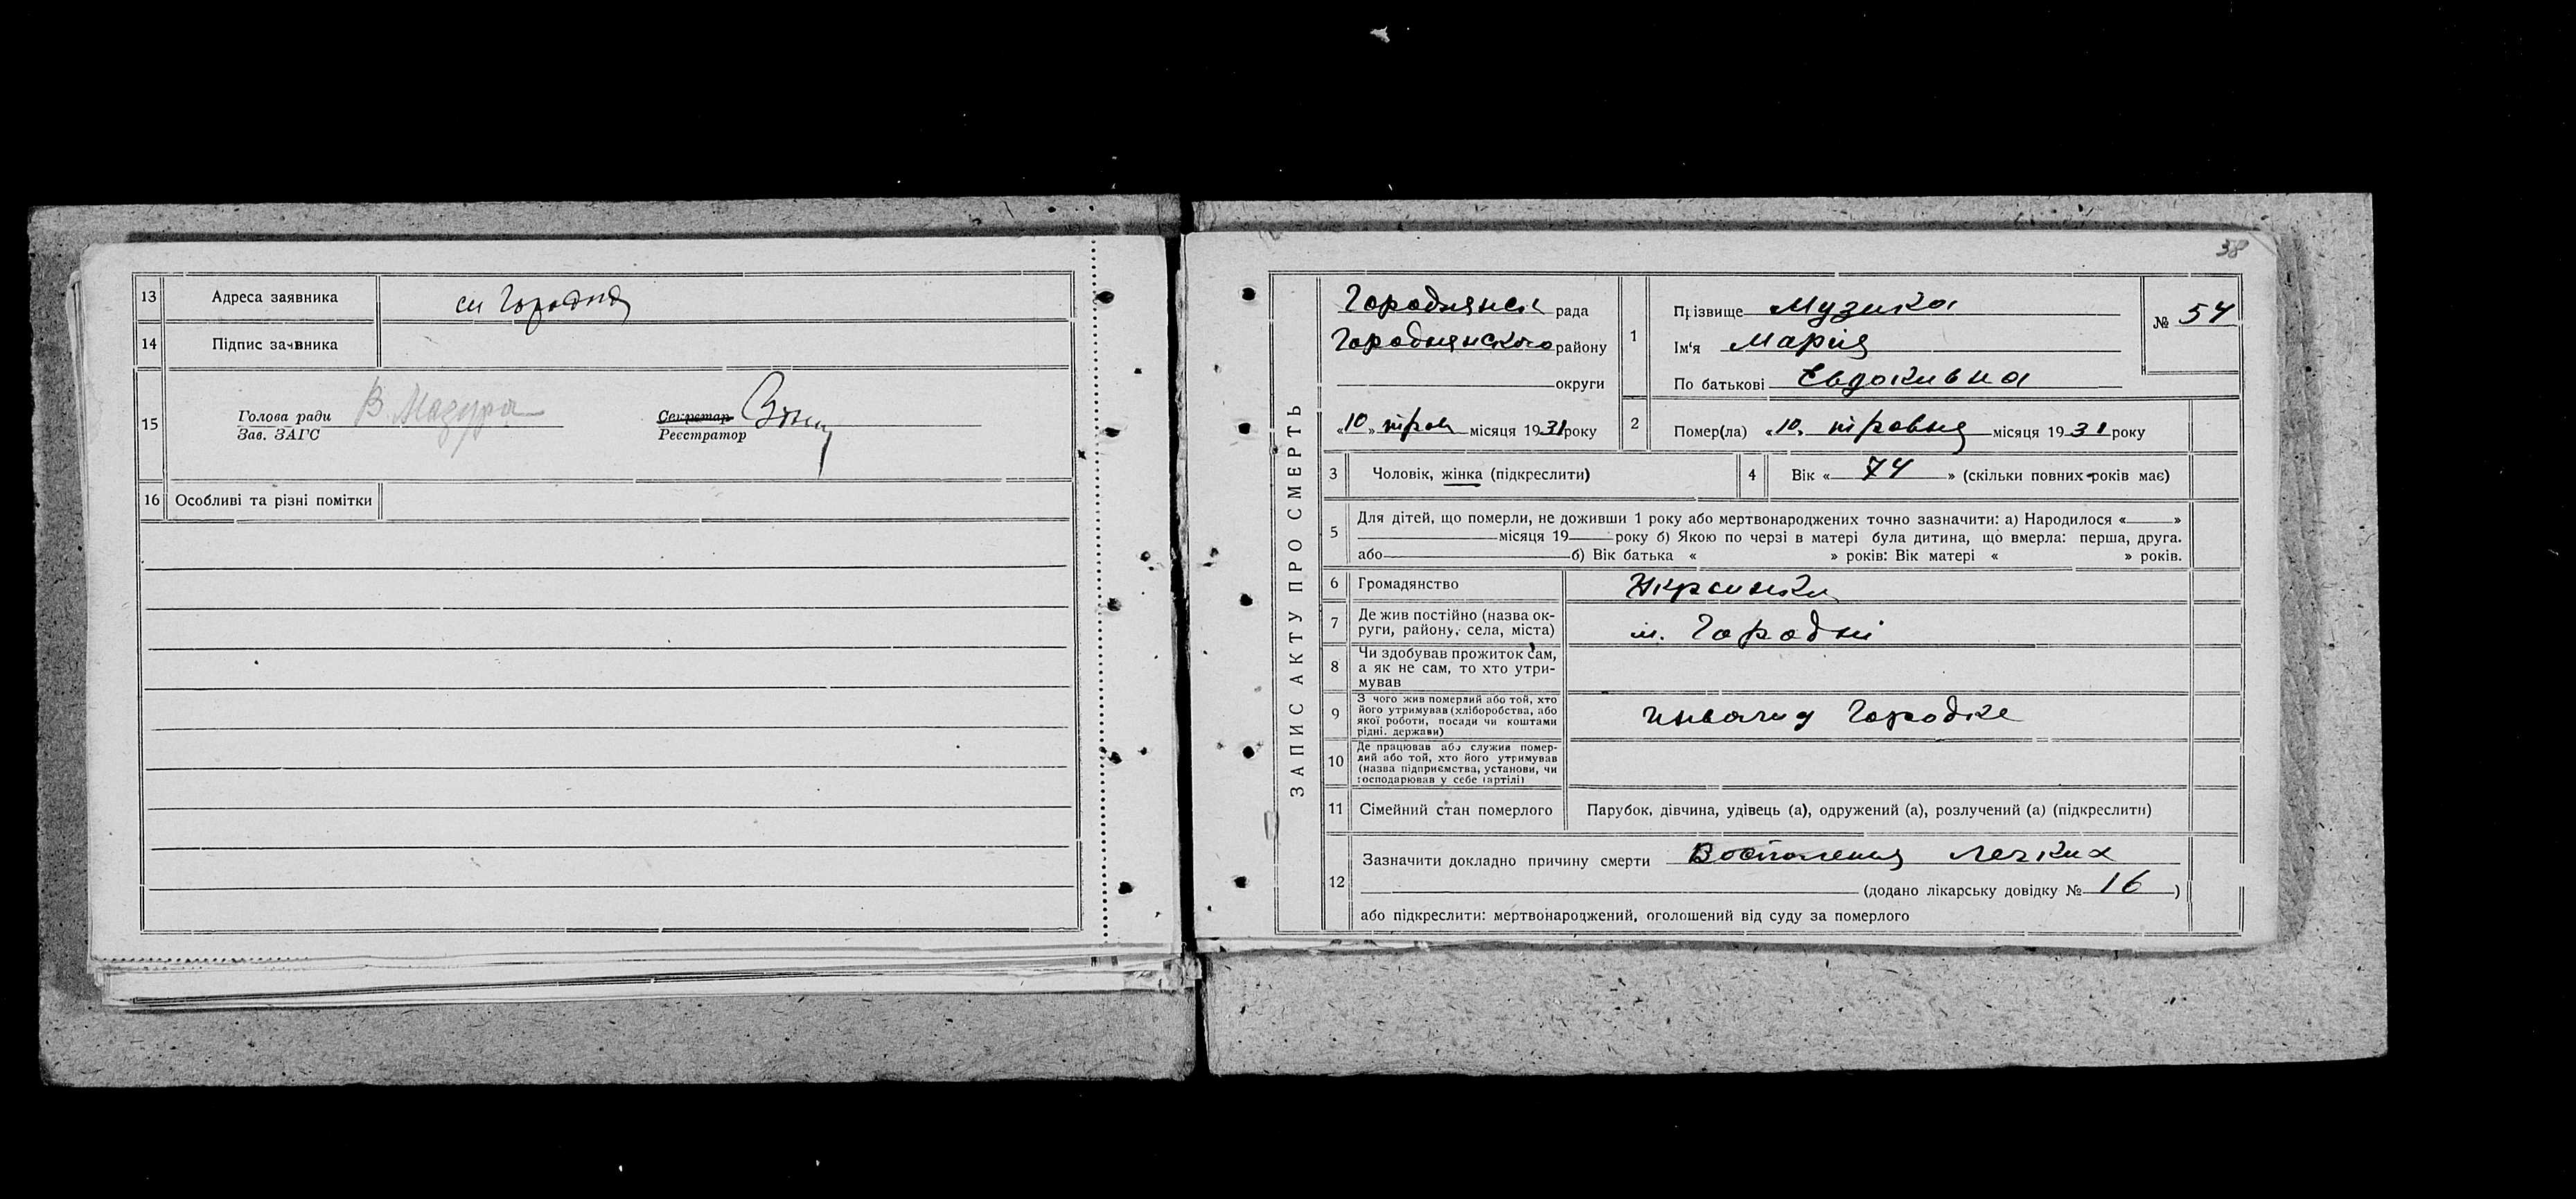 13 Адреса заявника м Городня
14 Підпис заявника
15 Голова ради В. Мазура
Зав. ЗАГС
Секретар
Реєстратор
16 Особливі та різні помітки
38
ЗАПИС АКТУ ПРО СМЕРТЬ
Городнянск рада
Городнянского району
округи
«10» трав місяця 1931 року
1 Прізвище Музика
Ім‘я Мария
По батькові Евдокивна
№ 54
2 Помер(ла) «10» травня місяця 1931 року
3 Чоловік, жінка (підкреслити)
4 Вік « 74 » (скільки повних років має)
5 Для дітей, що померли, не доживши 1 року або мертвонароджених точно зазначити: а) Народилося « »
місяця 19 року б) Якою по черзі в матері була дитина, що вмерла: перша, друга.
або б) Вік батька « » років: Вік матері « » років.
6 Громадянство Украинка
7 Де жив постійно (назва ок-
руги, району, села, міста) м. Городні
8 Чи здобував прожиток сам,
а як не сам, то хто утри-
мував
9 З чого жив померлий або той, хто
його утримував (хліборобства, або
якої роботи, посади чи коштами
рідні, держави)
10 Де працював або служив помер-
лий або той, хто його утримував
(назва підприємства, установи, чи
господарював у себе (артілі)
11 Сімейний стан померлого Парубок, дівчина, удівець (а), одружений (а), розлучений (а) (підкреслити)
12 Зазначити докладно причину смерти Воспаления легких
(додано лікарську довідку № 16 )
або підкреслити: мертвонароджений, оголошений від суду за померлого